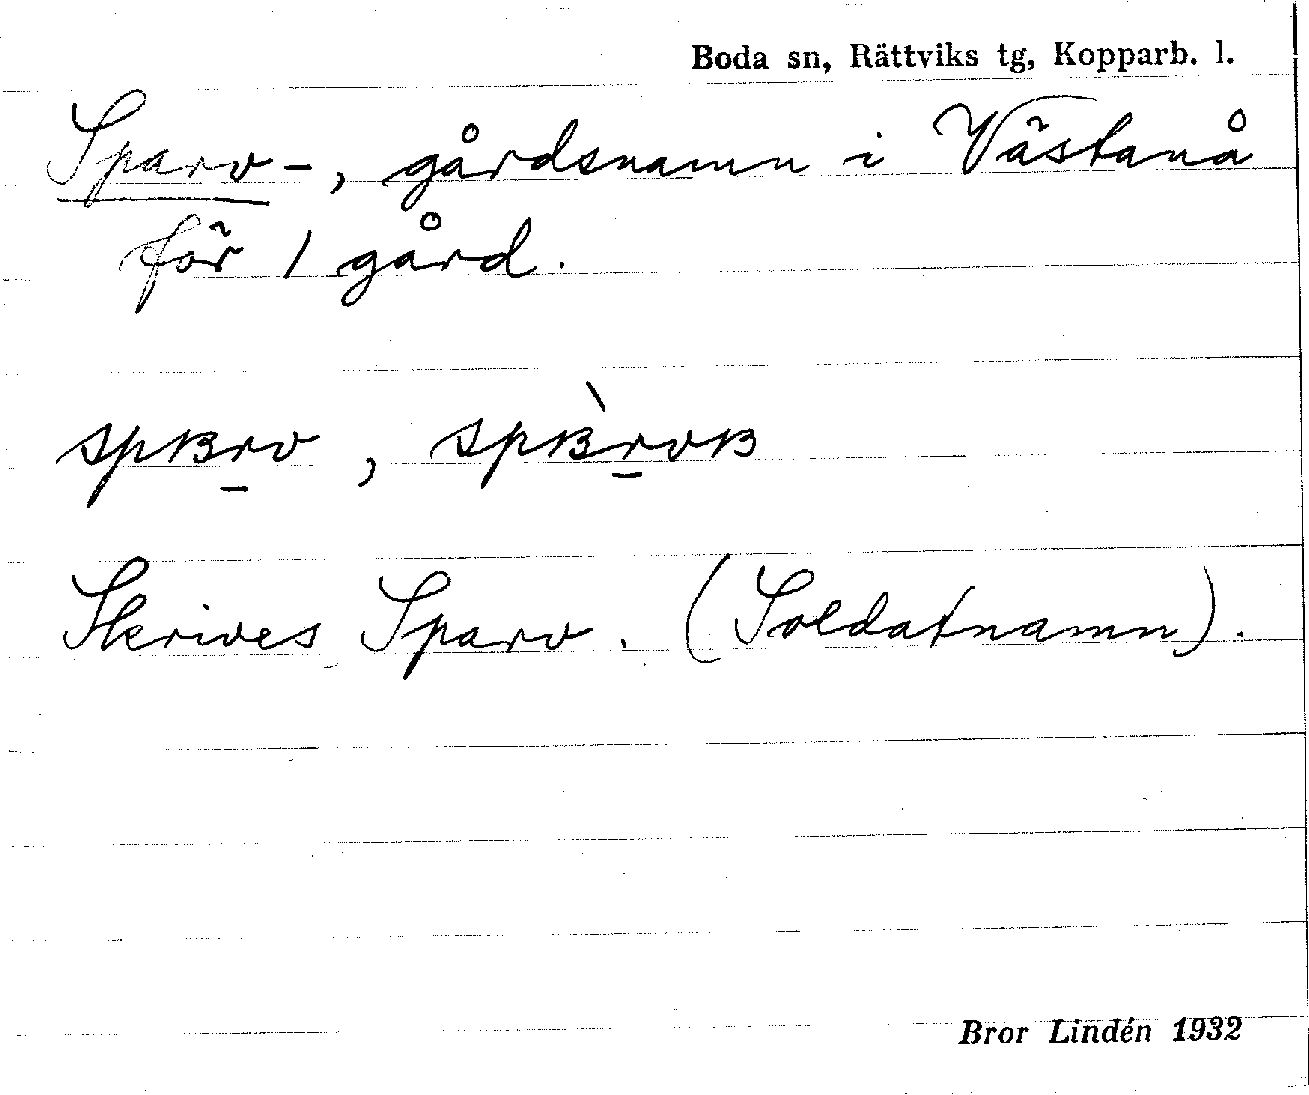 Boda sn, Rättviks tg, Kopparb. l.
Sparv-, gårdsnamn i Västanå
för 1 gård.
spʙr̠v, spʙ̀r̠vʙ
Skrives Sparv. (Soldatnamn).
Bror Lindén 1932